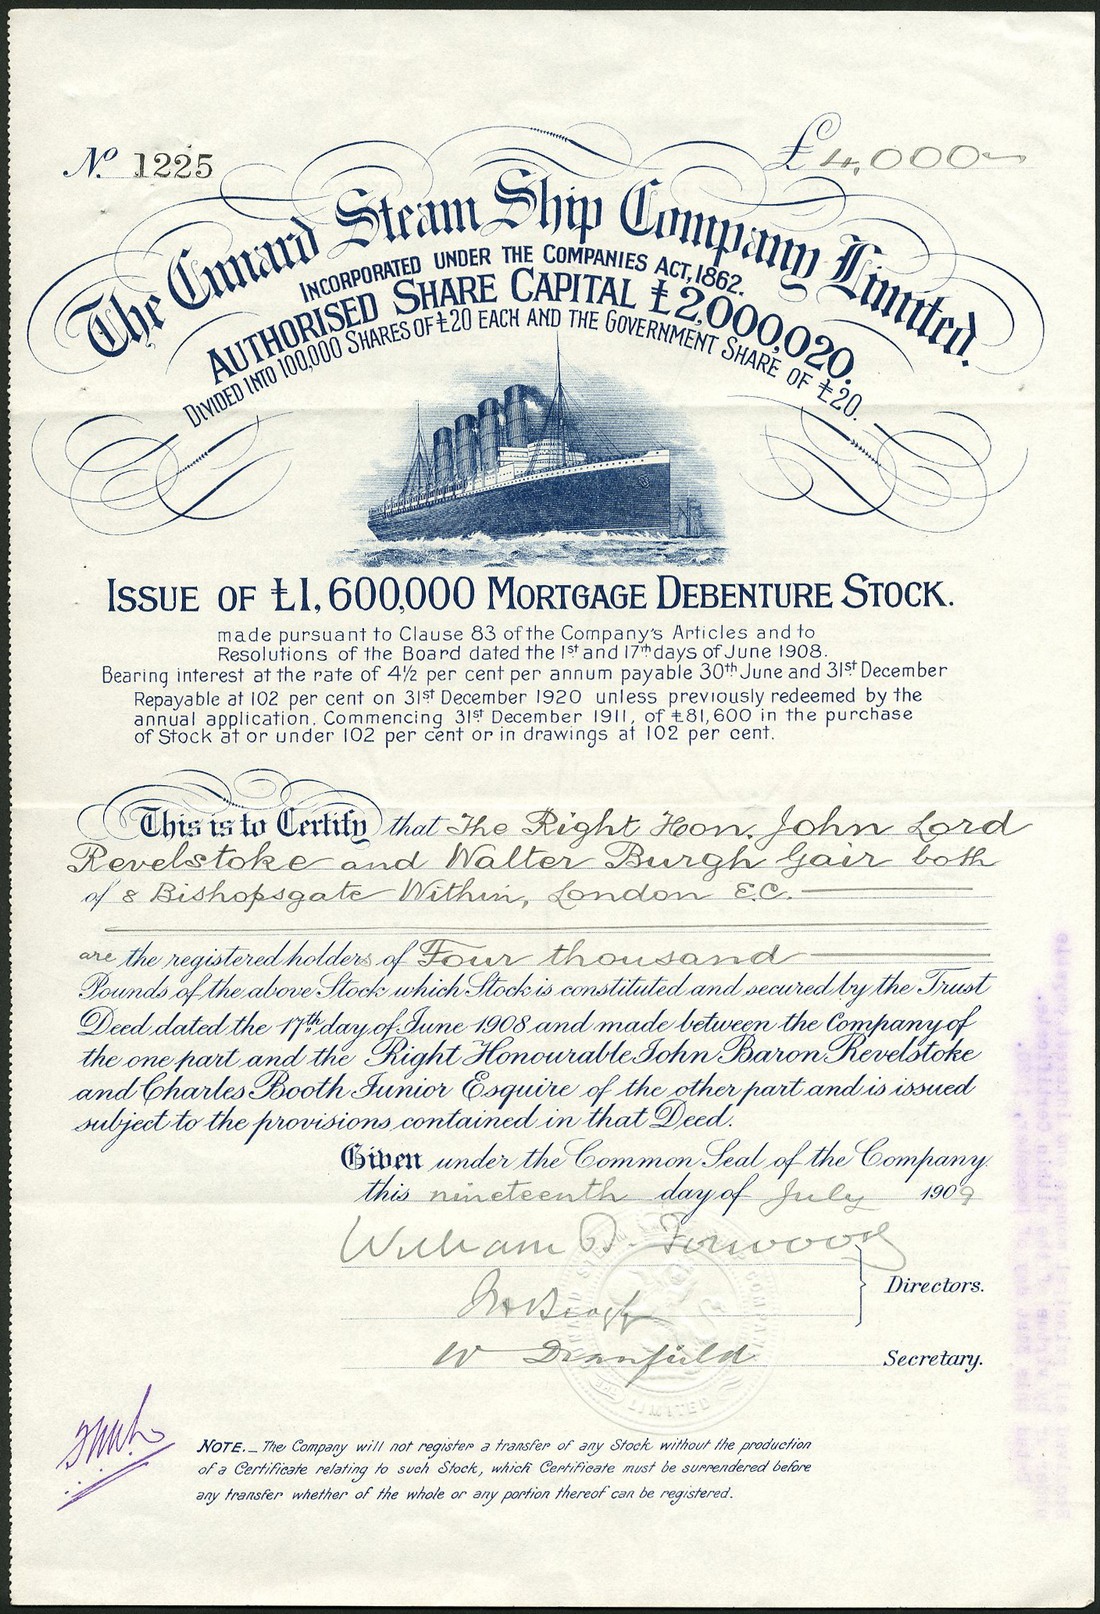 No. 1225
£4,000
The Cunard Steam Ship Company Limited.
INCORPORATED UNDER THE COMPANIES ACT, 1862.
AUTHORISED SHARE CAPITAL £2,000,020.
DIVIDED INTO 100,000 SHARES OF £20 EACH AND THE GOVERNMENT SHARE OF £20.
ISSUE OF £1,600,000 MORTGAGE DEBENTURE STOCK.
made pursuant to Clause 83 of the Company's Articles and to
Resolutions of the Board dated the 1st and 17th days of June 1908.
Bearing interest at the rate of 4½ per cent per annum payable 30th June and 31st December
Repayable at 102 per cent on 31st December 1920 unless previously redeemed by the
annual application, Commencing 31st December 1911, of £81,600 in the purchase
of Stock at or under 102 per cent or in drawings at 102 per cent.
This is to Certify that The Right Hon. John Lord
Revelstoke and Walter Burgh Gair both
of 8 Bishopsgate Within, London E.C.
are the registered holders of Four thousand
Pounds of the above Stock which Stock is constituted and secured by the Trust
Deed dated the 17th day of June 1908 and made between the Company of
the one part and the Right Honourable John Baron Revelstoke
and Charles Booth Junior Esquire of the other part and is issued
subject to the provisions contained in that Deed.
Given under the Common Seal of the Company
this nineteenth day of July 1909
William B. Forwood
Directors.
W Dranfield
Secretary.
LIMITED
NOTE.— The Company will not register a transfer of any Stock without the production
of a Certificate relating to such Stock, which Certificate must be surrendered before
any transfer whether of the whole or any portion thereof can be registered.